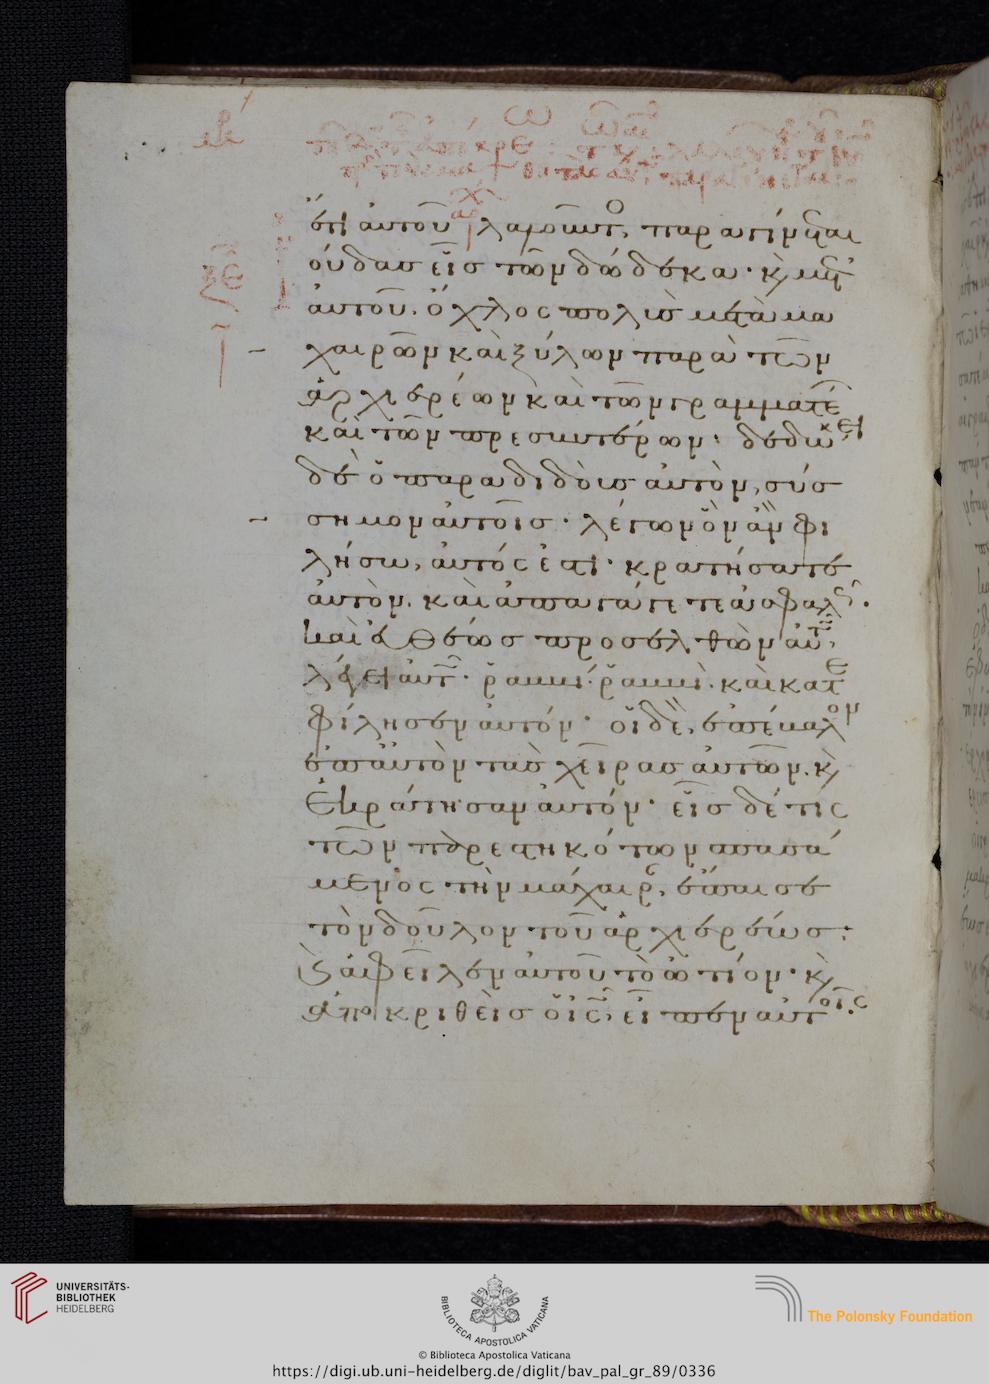 ἔτι αὐτοῦ λαλοῦντος, παραγίνεται
ἰούδας εἷς τῶν δώδεκα· καὶ μετ'
αὐτοῦ. ὄχλος πολὺς μετὰ μα
χαιρῶν καὶ ξύλων παρὰ τῶν
ἀρχιερέων καὶ τῶν γραμματέ
καὶ τῶν πρεσβυτέρων· δεδώκει
δὲ ὁ παραδιδοὺς αὐτὸν, σύσ
σημον αὐτοῖς· λέγων ὃν ἂν φι
λήσω, αὐτός ἐστι· κρατήσατε
αὐτὸν. καὶ ἀπαγάγετε ἀσφαλῶς.
καὶ εὐθέως προσελθὼν αὐτῷ,
λέγει αὐτῷ· ῥαββί· ῥαββὶ. καὶ κατε
φίλησεν αὐτόν· οἱ δὲ, ἐπέβαλον
ἐπ' αὐτὸν τὰς χεῖρας αὐτῶν. καὶ
ἐκράτησαν αὐτόν· εἷς δέ τις
τῶν παρεστηκότων σπασά
μενος τὴν μάχαιραν, ἔπαισε
τὸν δοῦλον τοῦ ἀρχιερέως·
καὶ ἀφεῖλεν αὐτοῦ τὸ ὠτίον· καὶ
ἀποκριθεὶς ὁ ἰς, εἶπεν αὐτοῖς.
UNIVERSITÄTS-
BIBLIOTHEK
HEIDELBERG
BIBLIOTECA APOSTOLICA VATICANA
The Polonsky Foundation
© Biblioteca Apostolica Vaticana
https://digi.ub.uni-heidelberg.de/diglit/bav_pal_gr_89/0336